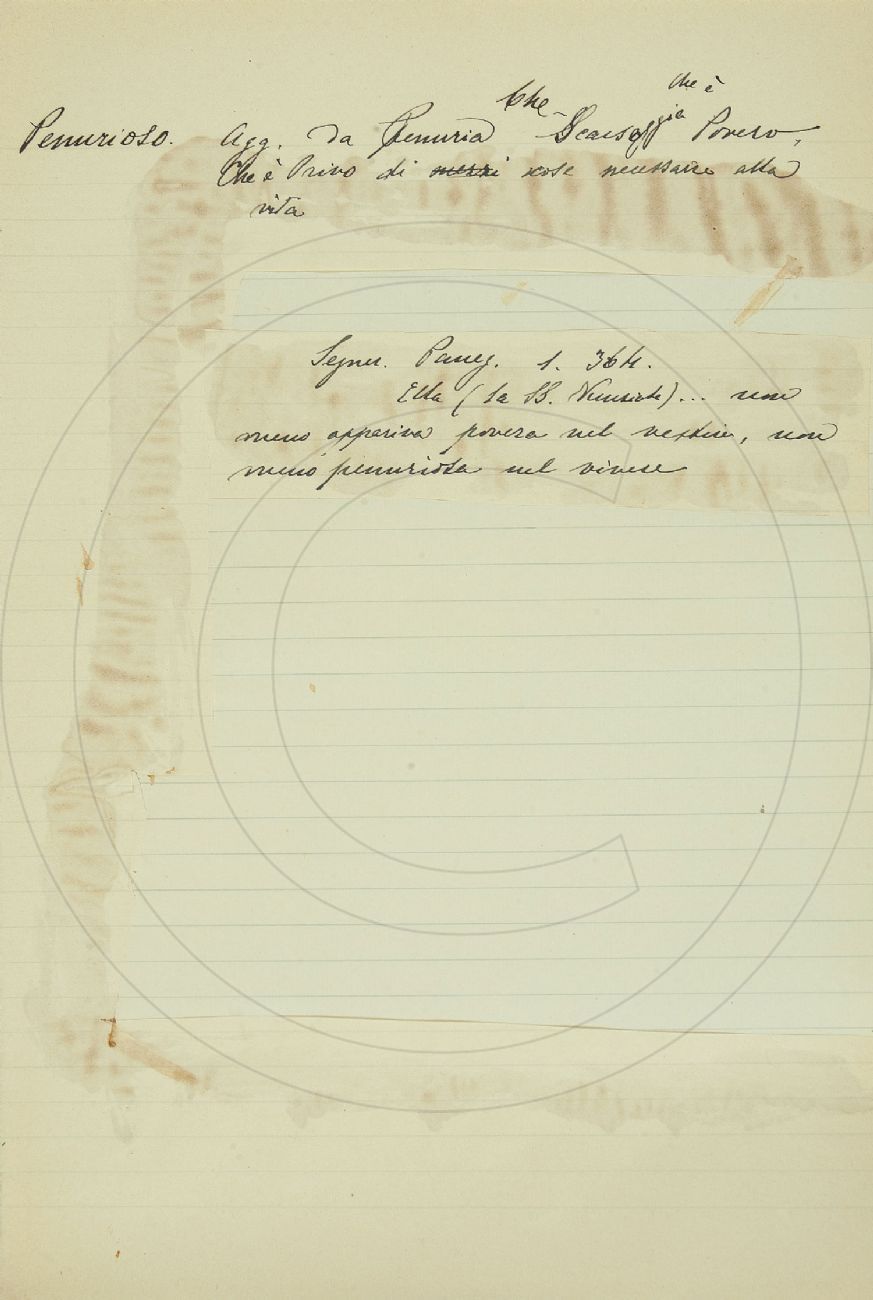 Che che è
Penurioso. Agg. Da Penuria Scarseggia Povero,
Che è Privo di mezzi cose necessarie alla
vita
Segner. Paneg. 1. 364.
Ella (la SS. ... non
meno appariva povera nel vestire, non
meno penuriosa nel vivere